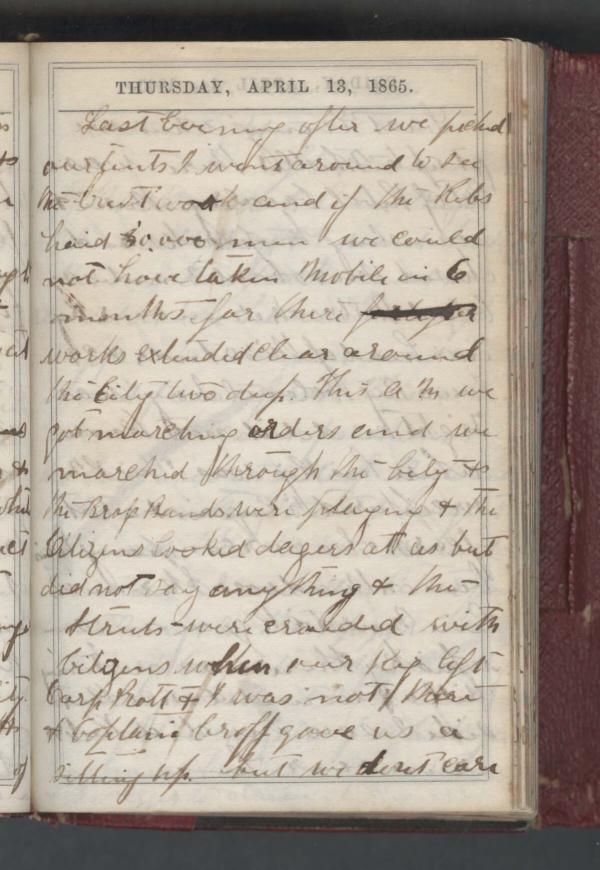 THURSDAY, APRIL 13, 1865.
Last Evening after we pichd
our tents I went around to see
the brest works and if the Rebs
haid 30,000 men we could
not have taken Mobile in 6
months for there
works extended clear around
the City two deep. This A M we
got marching orders and we
marched through the City &
the Brass Bands were playing & the
Citizens looked dagers at us but
did not say any thing & the
Streets were crowded with
Citizens when our Reg left
Corp Pratt & I was not there
& Captain Groff gave us a
setting up. but we dont care